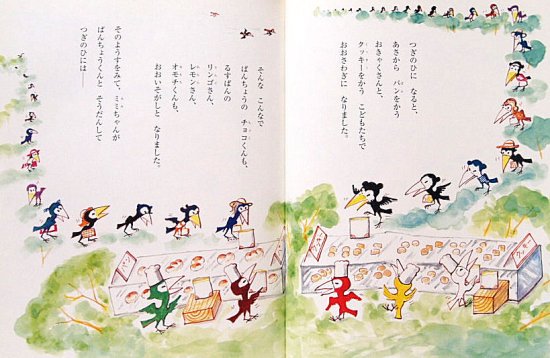 つぎのひに なると、
あさから パンをかう
おきゃくさんと、
クッキーをかう こどもたちで
おおさわぎに なりました。
そんな こんなで
ばんちょうの チョコくんも、
るすばんの
リンゴさん、
レモンさん、
オモチくんも、
おおいそがしと なりました。
そのようすをみて、ミミちゃんが
ばんちょうくんと そうだんして
つぎのひには――